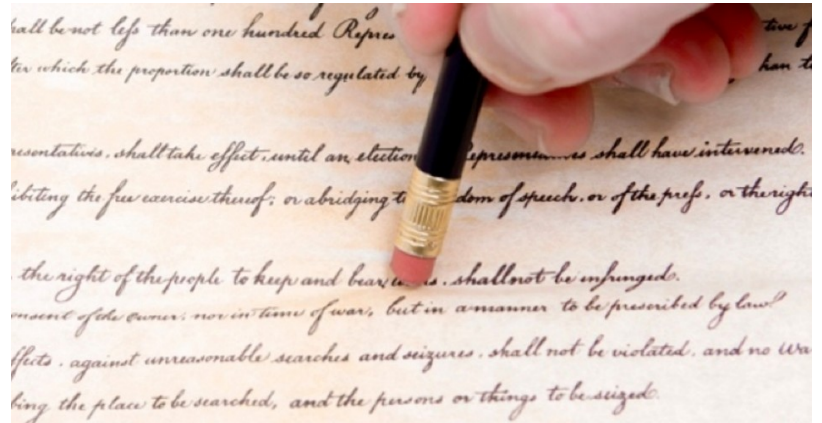 hall be not less than one hundred Repres tive
ter which the proportion shall be so regulated by han
resentatives, shall take effect, until an election Representatives shall have intervened.
ibiting the free exercise thereof; or abridging dom of speech, or of the press, or the right
the right of the people to keep and bear s, shall not be infringed.
onsent of the owner, nor in time of war, but in a manner to be prescribed by law.
ffects, against unreasonable searches and seizures, shall not be violated, and no Wa
bing the place to be searched, and the persons or things to be seized.